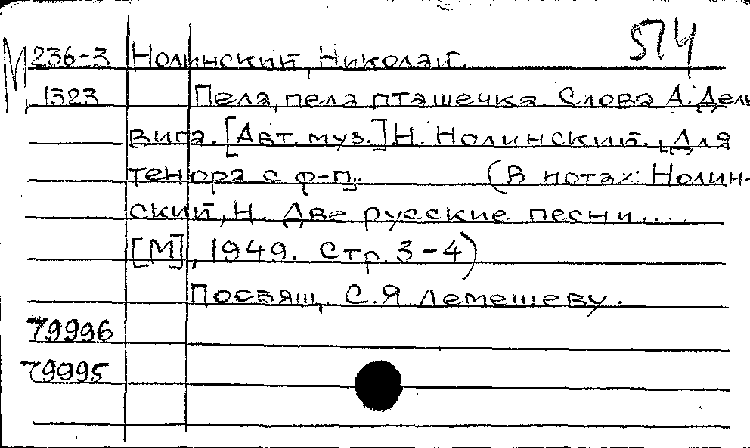 574
М 236-3 Нолинский, Николай.
1323 Пела, пела пташечка. Слова А. Дель
вига. [Авт. муз.] Н. Нолинский. Для
тенора с ф-п. (В нотах: Нолин-
ский, Н. Две русские песни....
[М], 1949. Стр. 3-4)
Посвящ. С.Я Лемешеву.
79996
79995